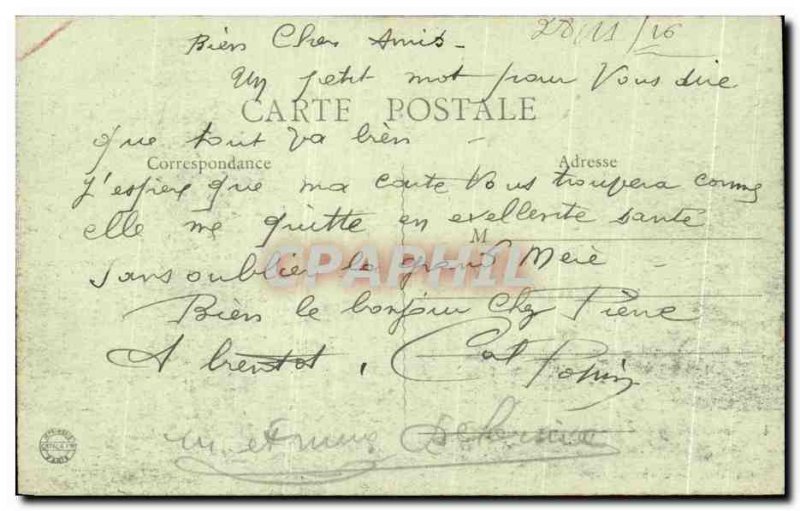 28/11/16
Bien Cher Amis -
Un petit mot pour Vous dire
CARTE POSTALE
que tout va bien -
Correspondance Adresse
J'espère que ma carte Vous troupera comme
elle me quitte en exellente santé
M
sans oublier la grand Mère -
CPAPHIL
Bien le bonjour Chez Pierre
A bientot,
M. et Mme